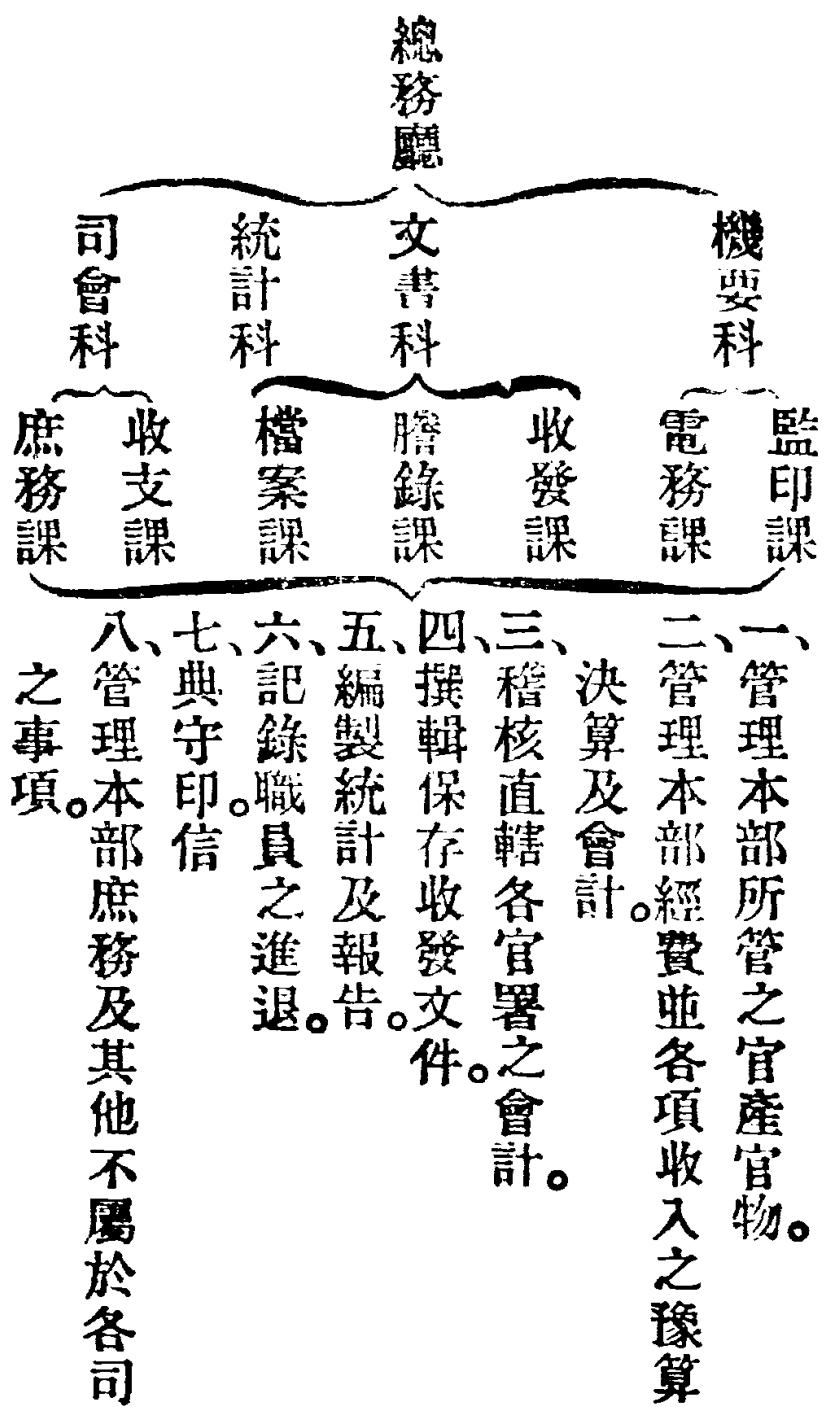 總務廳
機要科
文書科
統計科
司會科
監印課
電務課
收發課
謄錄課
檔案課
收支課
庶務課
一、管理本部所管之官產官物。
二、管理本部經費並各項收入之豫算
決算及會計。
三、稽核直轄各官署之會計。
四、撰輯保存收發文件。
五、編製統計及報告。
六、記錄職員之進退。
七、典守印信。
八、管理本部庶務及其他不屬於各司
之事項。